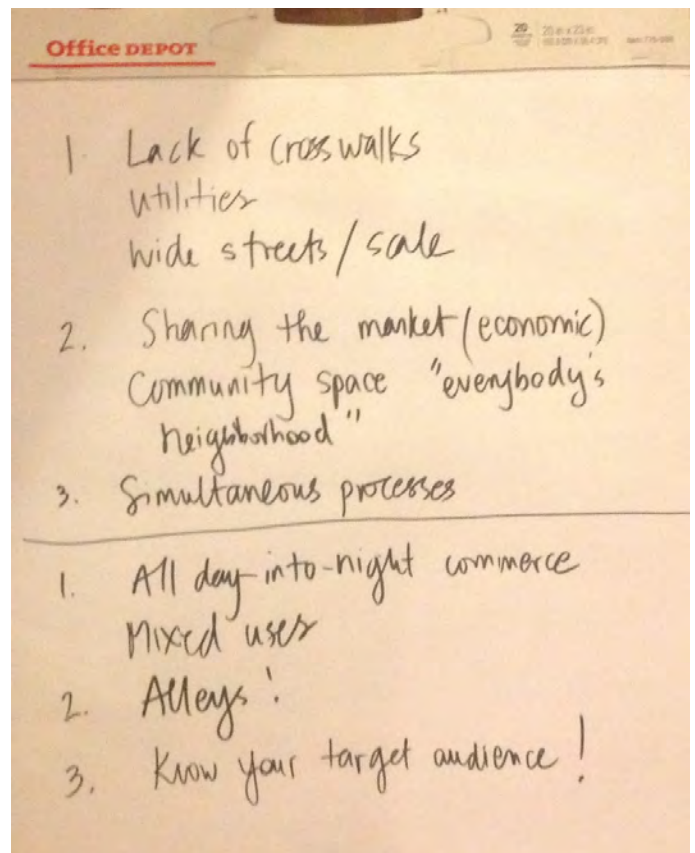 Office DEPOT
20
1. Lack of crosswalks
utilities
wide streets / scale
2. Sharing the market (economic)
Community space "everybody's
neighborhood"
3. Simultaneous processes
1. All day-into-night commerce
Mixed uses
2. Alleys!
3. Know your target audience!